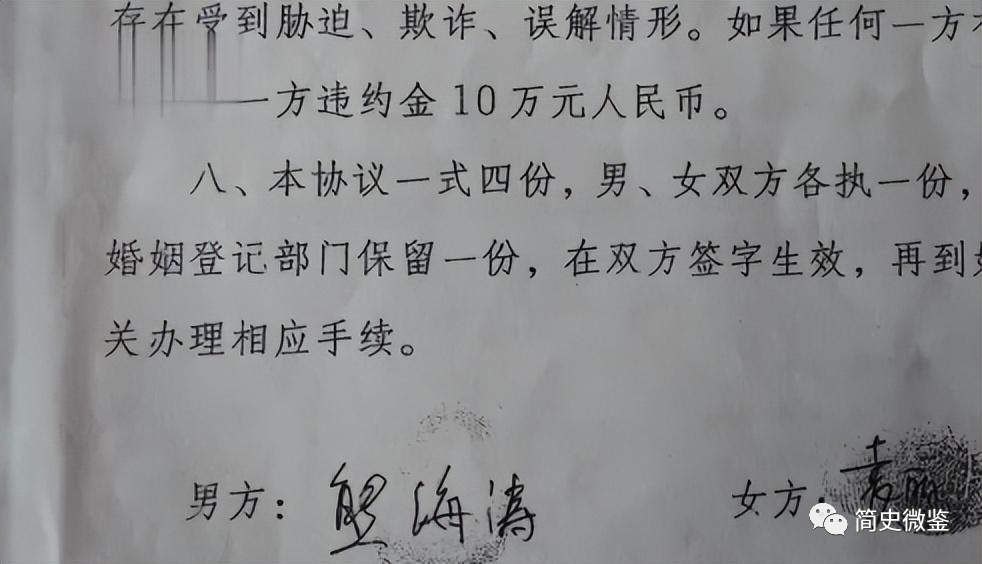 存在受到胁迫、欺诈、误解情形。如果任何一方
一方违约金10万元人民币。
八、本协议一式四份，男、女双方各执一份，
婚姻登记部门保留一份，在双方签字生效，再到
关办理相应手续。
男方： 熊海涛 女方： 袁丽
简史微鉴